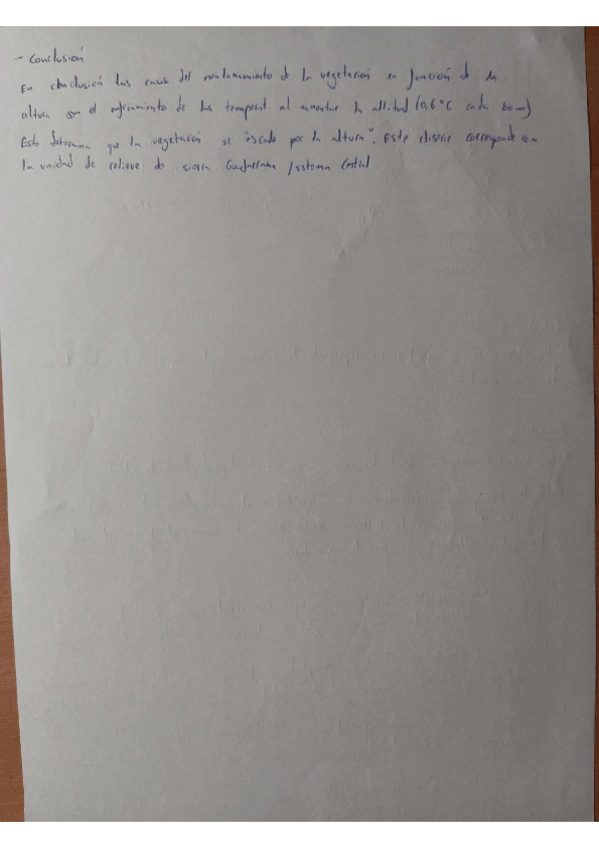 - Conclusión
En conclusión las causas del escalonamiento de la vegetación en función de la
altura son el enfriamiento de las temperat al aumentar la altitud (0,6°C cada 100m)
Esto determina que la vegetación se "escale por la altura". Este cliserie corresponde con
la unidad de relieve de sierra Guadarrama /sistema Central